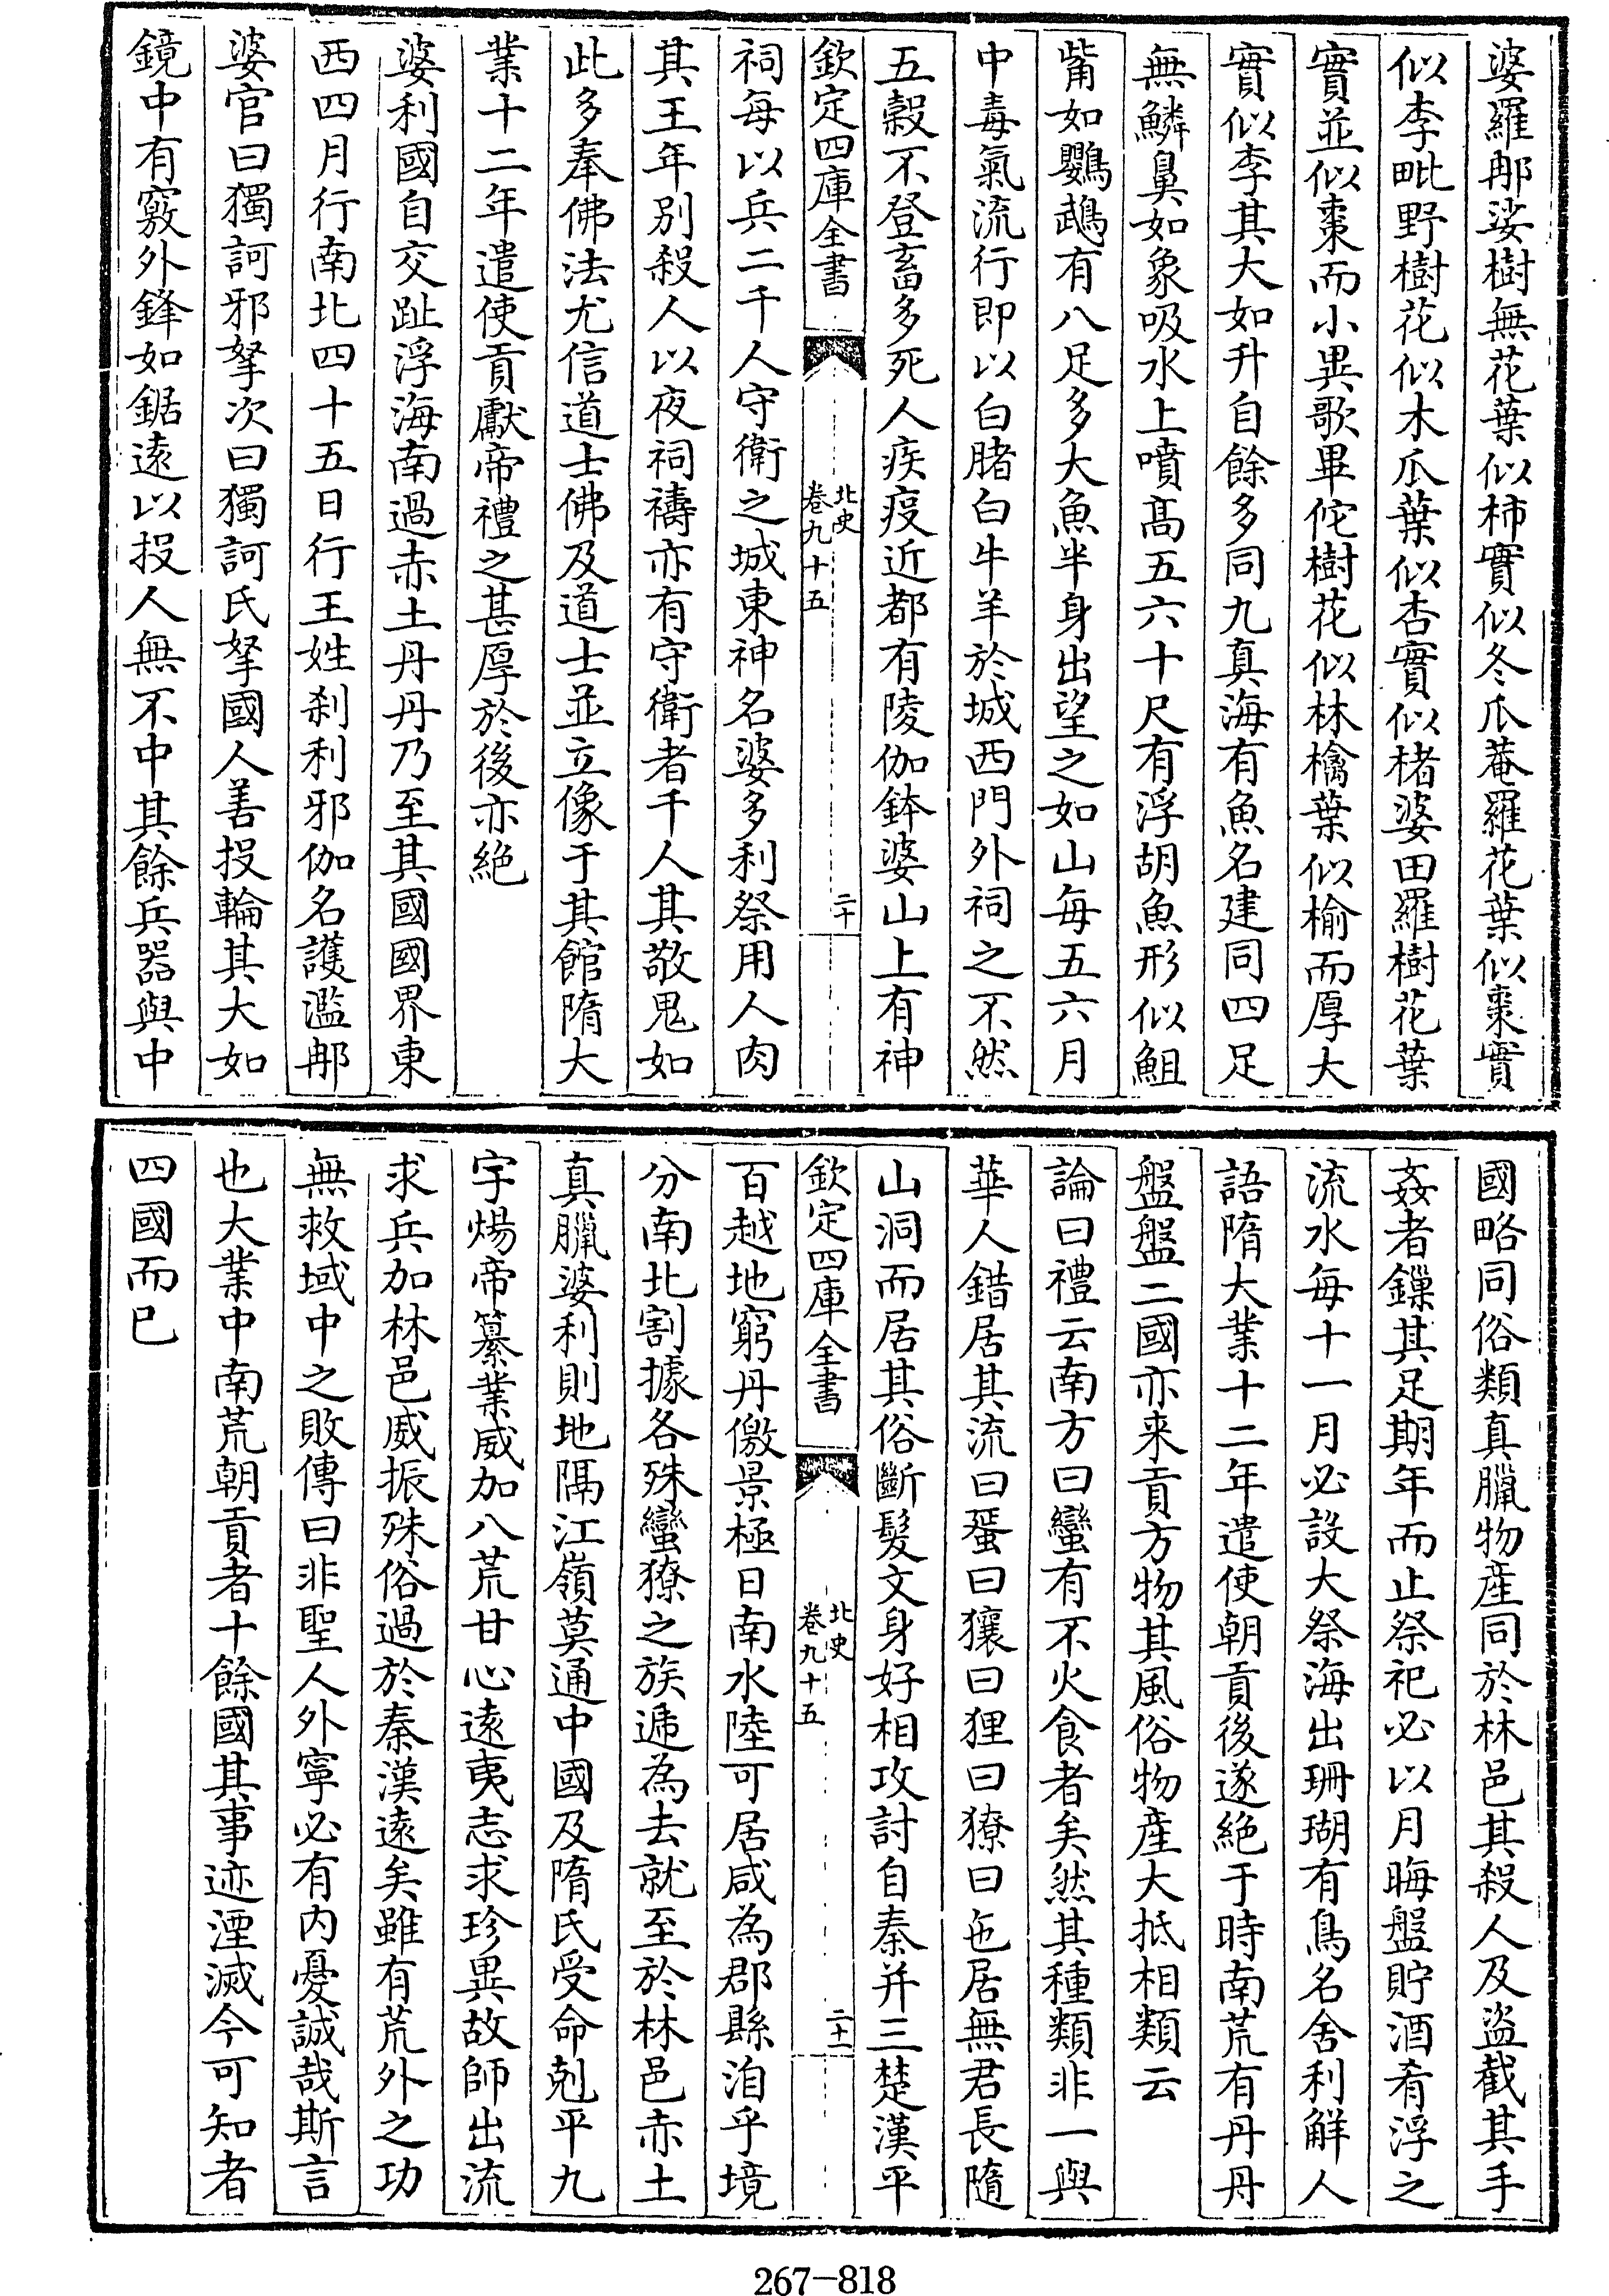 婆羅那娑樹無花葉似柿實似冬瓜菴羅花葉似棗實
似李毗野樹花似木瓜葉似杏實似楮婆田羅樹花葉
實並似棗而小異歌畢佗樹花似林檎葉似榆而厚大
實似李其大如升自餘多同九真海有魚名建同四足
無鱗鼻如象吸水上噴髙五六十尺有浮胡魚形似䱉
觜如鸚鵡有八足多大魚半身出望之如山每五六月
中毒氣流行即以白豬白牛羊於城西門外祠之不然
五榖不登畜多死人疾疫近都有陵伽鉢婆山上有神
欽定四庫全書
北史
卷九十五
二十
祠每以兵二千人守衛之城東神名婆多利祭用人肉
其王年别殺人以夜祠禱亦有守衛者千人其敬鬼如
此多奉佛法尤信道士佛及道士並立像于其館隋大
業十二年遣使貢獻帝禮之甚厚於後亦絶
婆利國自交趾浮海南過赤土丹丹乃至其國國界東
西四月行南北四十五日行王姓刹利邪伽名護濫那
婆官曰獨訶邪拏次曰獨訶氏拏國人善投輪其大如
鏡中有竅外鋒如鋸遠以投人無不中其餘兵器與中
國略同俗類真臘物産同於林邑其殺人及盜截其手
姦者鏁其足期年而止祭祀必以月晦盤貯酒肴浮之
流水每十一月必設大祭海出珊瑚有鳥名舍利解人
語隋大業十二年遣使朝貢後遂絶于時南荒有丹丹
盤盤二國亦来貢方物其風俗物産大抵相類云
論曰禮云南方曰蠻有不火食者矣然其種類非一與
華人錯居其流曰蜑曰獽曰狸曰獠曰㐌居無君長隨
山洞而居其俗斷髮文身好相攻討自秦并三楚漢平
欽定四庫全書
北史
卷九十五
二十一
百越地窮丹徼景極日南水陸可居咸為郡縣洎乎境
分南北割據各殊蠻獠之族遞為去就至於林邑赤土
真臘婆利則地隅江嶺莫通中國及隋氏受命剋平九
宇煬帝纂業威加八荒甘心遠夷志求珍異故師出流
求兵加林邑威振殊俗過於秦漢遠矣雖有荒外之功
無救域中之敗傳曰非聖人外寧必有内憂誠哉斯言
也大業中南荒朝貢者十餘國其事迹湮滅今可知者
四國而已
267-818